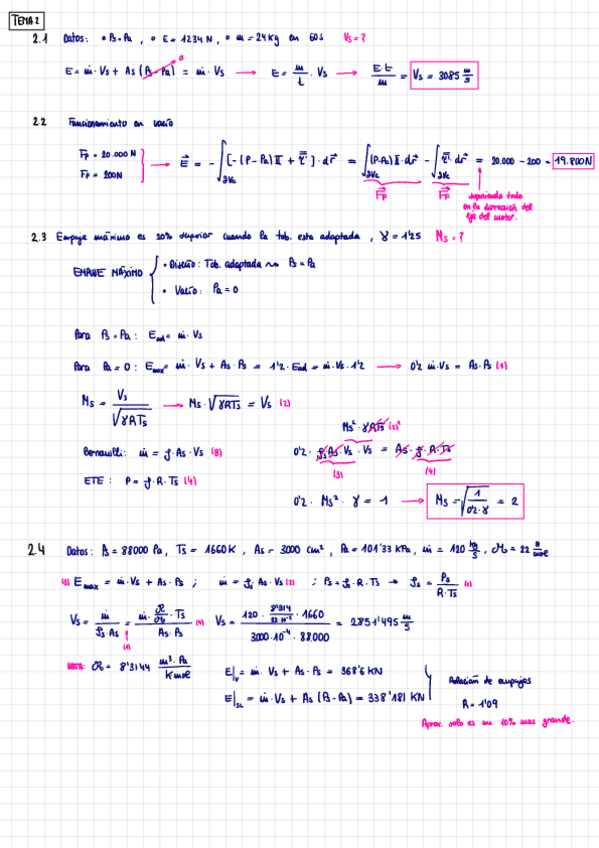 TEMA 2
2.1 Datos: • Ps = Pa , • E = 1234 N , • m = 24 Kg en 60 s Vs = ?
E = ṁ · Vs + As (Ps - Pa) 0 = ṁ · Vs → E = m/t · Vs → E·t/m = Vs = 3085 m/s
2.2 Funcionamiento en vacío
Fp = 20.000 N
FF = 200 N
→ E = - ∫∂Vc [-(P - Pa) I + τ'] · dσ = ∫∂Vc (P-Pa) I · dσ - ∫∂Vc τ' dσ = 20.000 - 200 = 19.800 N
Fp FF suponiendo todo
en la dirección del
eje del motor.
2.3 Empuje máximo es 20% superior cuando la tob. esta adaptada , γ = 1'25 Ms = ?
EMPUJE MÁXIMO
• Diseño: Tob. adaptada ⇝ Ps = Pa
• Vacío: Pa = 0
Para Ps = Pa : Ead = ṁ · Vs
Para Pa = 0 : Emax = ṁ · Vs + As · Ps = 1'2 · Ead = ṁ · Vs · 1'2 → 0'2 ṁ·Vs = As·Ps (1)
Ms = Vs/√(γRTs) → Ms·√(γRTs) = Vs (2)
Ms² · γRTs (2)²
ṁ = ρ·As·Vs (3) 0'2 · ρs·As·Vs · Vs = As · ρ·R·Ts
(3) (4)
ETE : P = ρ·R·Ts (4)
0'2 · Ms² · γ = 1 → Ms = √(1/(0'2·γ)) = 2
2.4 Datos: Ps = 88000 Pa, Ts = 1660 K , As = 3000 cm², Pa = 101'33 KPa, ṁ = 120 kg/s , M = 22 g/mol
(3) Emax = ṁ · Vs + As · Ps ; ṁ = ρs·As·Vs (2) ; Ps = ρs·R·Ts → ρs = Ps/(R·Ts) (1)
Vs = ṁ/(ρs·As) = ṁ·(R/M)·Ts/(As·Ps) (4) Vs = 120 · 8'314/(22·10⁻³) · 1660/(3000·10⁻⁴ · 88.000) = 2851'495 m/s
(1)
NOTA: R = 8'3144 m³·Pa/(K mol)
E|v = ṁ · Vs + As · Ps = 368'6 KN
E|SL = ṁ · Vs + As (Ps - Pa) = 338'181 KN
Relación de empujes
R = 1'09
Aprox. solo es un 10% mas grande.